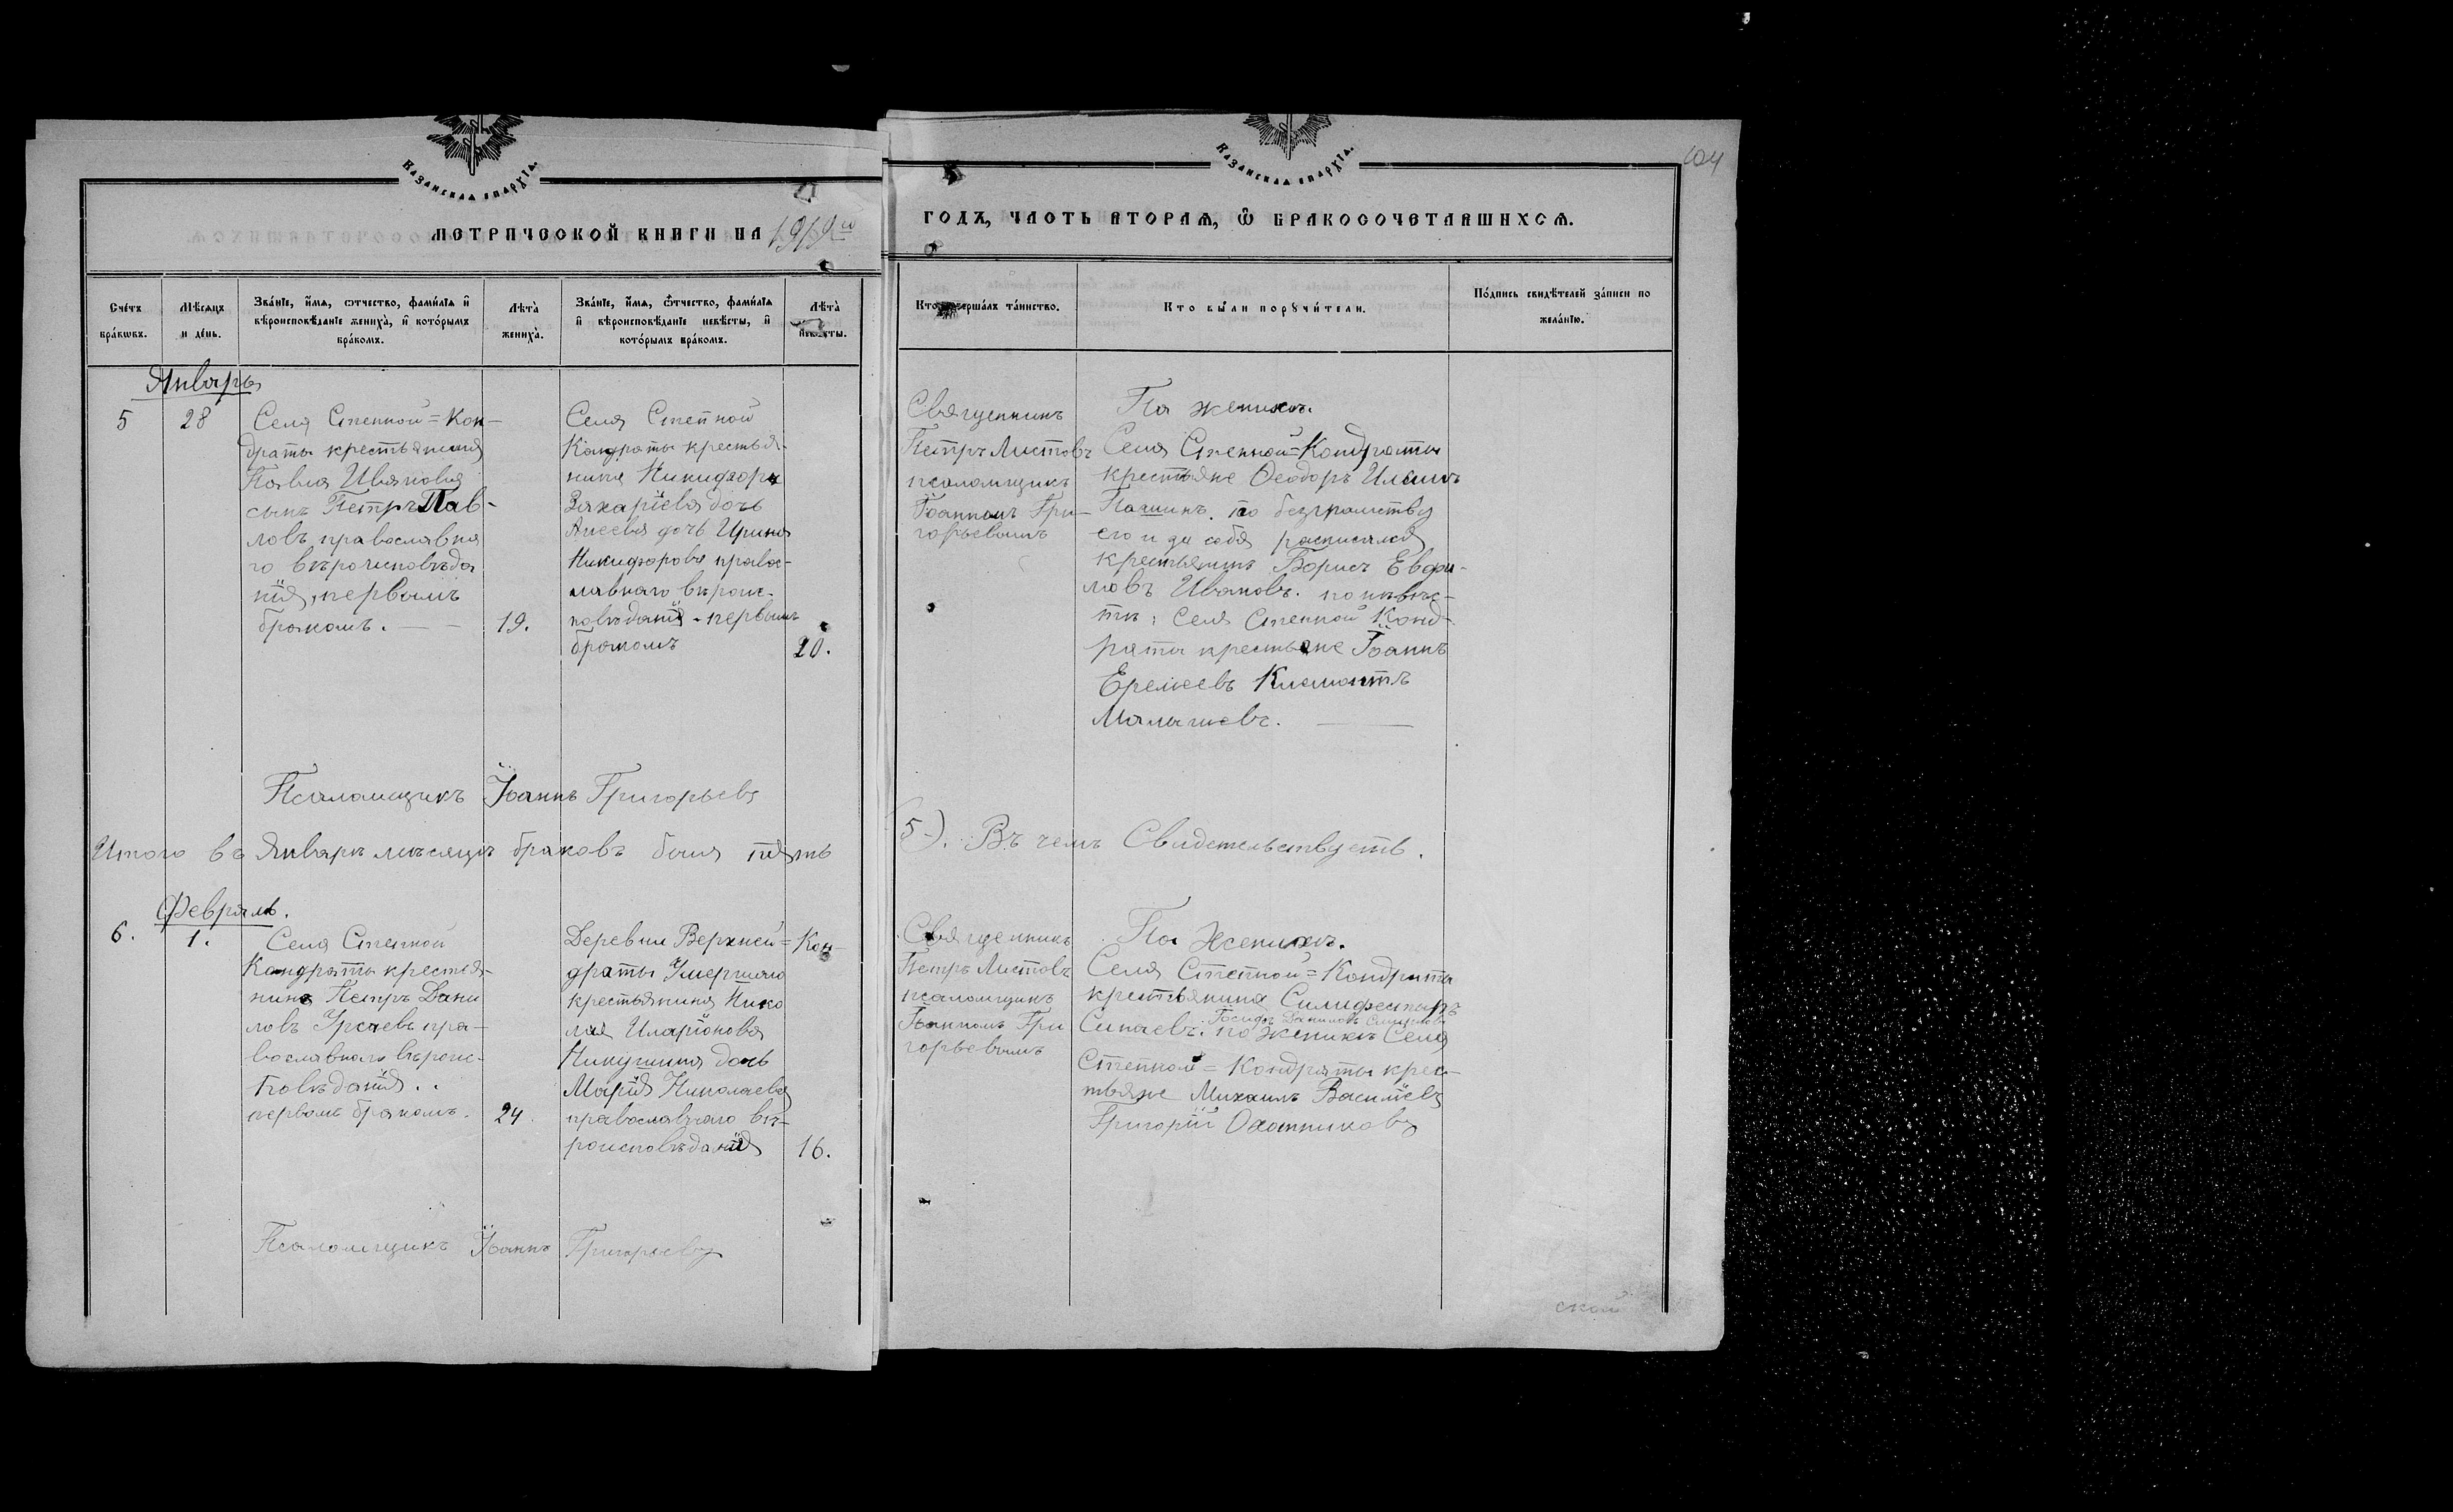 Казанская епархїа.
Казанская епархїа.
104
МЕТРИЧЕСКОЙ КНИГИ НА 1919
ГОДЪ, ЧАСТЬ ВТОРАѦ, Ѿ БРАКОСОЧЕТАВШИХСѦ.
Счетъ браковъ.
Мѣсяцъ и день.
Званїе, имя, отчество, фамилїя и вѣроисповѣданїе жениха, и которымъ бракомъ.
Лѣта жениха.
Званїе, имя, отчество, фамилїя и вѣроисповѣданїе невѣсты, и которымъ бракомъ.
Лѣта невѣсты.
Кто совершалъ таинство.
Кто были поручители.
Подпись свидѣтелей записи по желанїю.
Январь
5
28
Села Степной=Кон-
драты крестьянина
Павла Иванова
сынъ Петръ Пав-
ловъ, православна
го вѣроисповѣда
нія, первымъ
бракомъ.
19.
Села Степной
Кондраты крестья-
нина Никифора
Захаріева дочь
Анеева дочь Ирина
Никифорова правос-
лавнаго вѣроис-
повѣданія. первымъ
бракомъ
20.
Священникъ
Петръ Листовъ
псаломщикъ
Іоанномъ Гри-
горьевымъ
По женихѣ.
Села Степной=Кондраты
крестьяне Ѳеодоръ
Пашинъ. по безграмству
его и за себя расписался
крестьянинъ Борисъ Евфи-
мовъ Ивановъ. по невѣс-
тѣ: Села Степной Конд-
раты крестьяне Іоаннъ
Еремеевъ
Псаломщикъ Іоаннъ Григорьевъ
Итого въ Январѣ мѣсяцѣ браковъ было пять
5). Въ чемъ Свидетельствуетъ.
Февраль.
6.
1.
Села Степной
Кондраты крестья-
нинъ Петръ Дани
ловъ пра-
вославнаго вѣроис-
повѣданія..
первымъ бракомъ.
24.
Деревни Верхней=Кон-
драты Умершаго
крестьянина Нико
лая Иларіонова
Никушина дочь
Марія Николаева
православнаго вѣ-
роисповѣданія
16.
Священникъ
Петръ Листовъ
псаломщикъ
Іоанномъ Гри
горьевымъ
По Женихѣ.
Села Степной=Кондраты
крестьянина
Даниловъ
по женихѣ Села
Степной=Кондраты крес-
тьяне Михаилъ Василіевъ
Григорій Охотниковъ
Псаломщикъ Іоаннъ Григорьевъ
ской